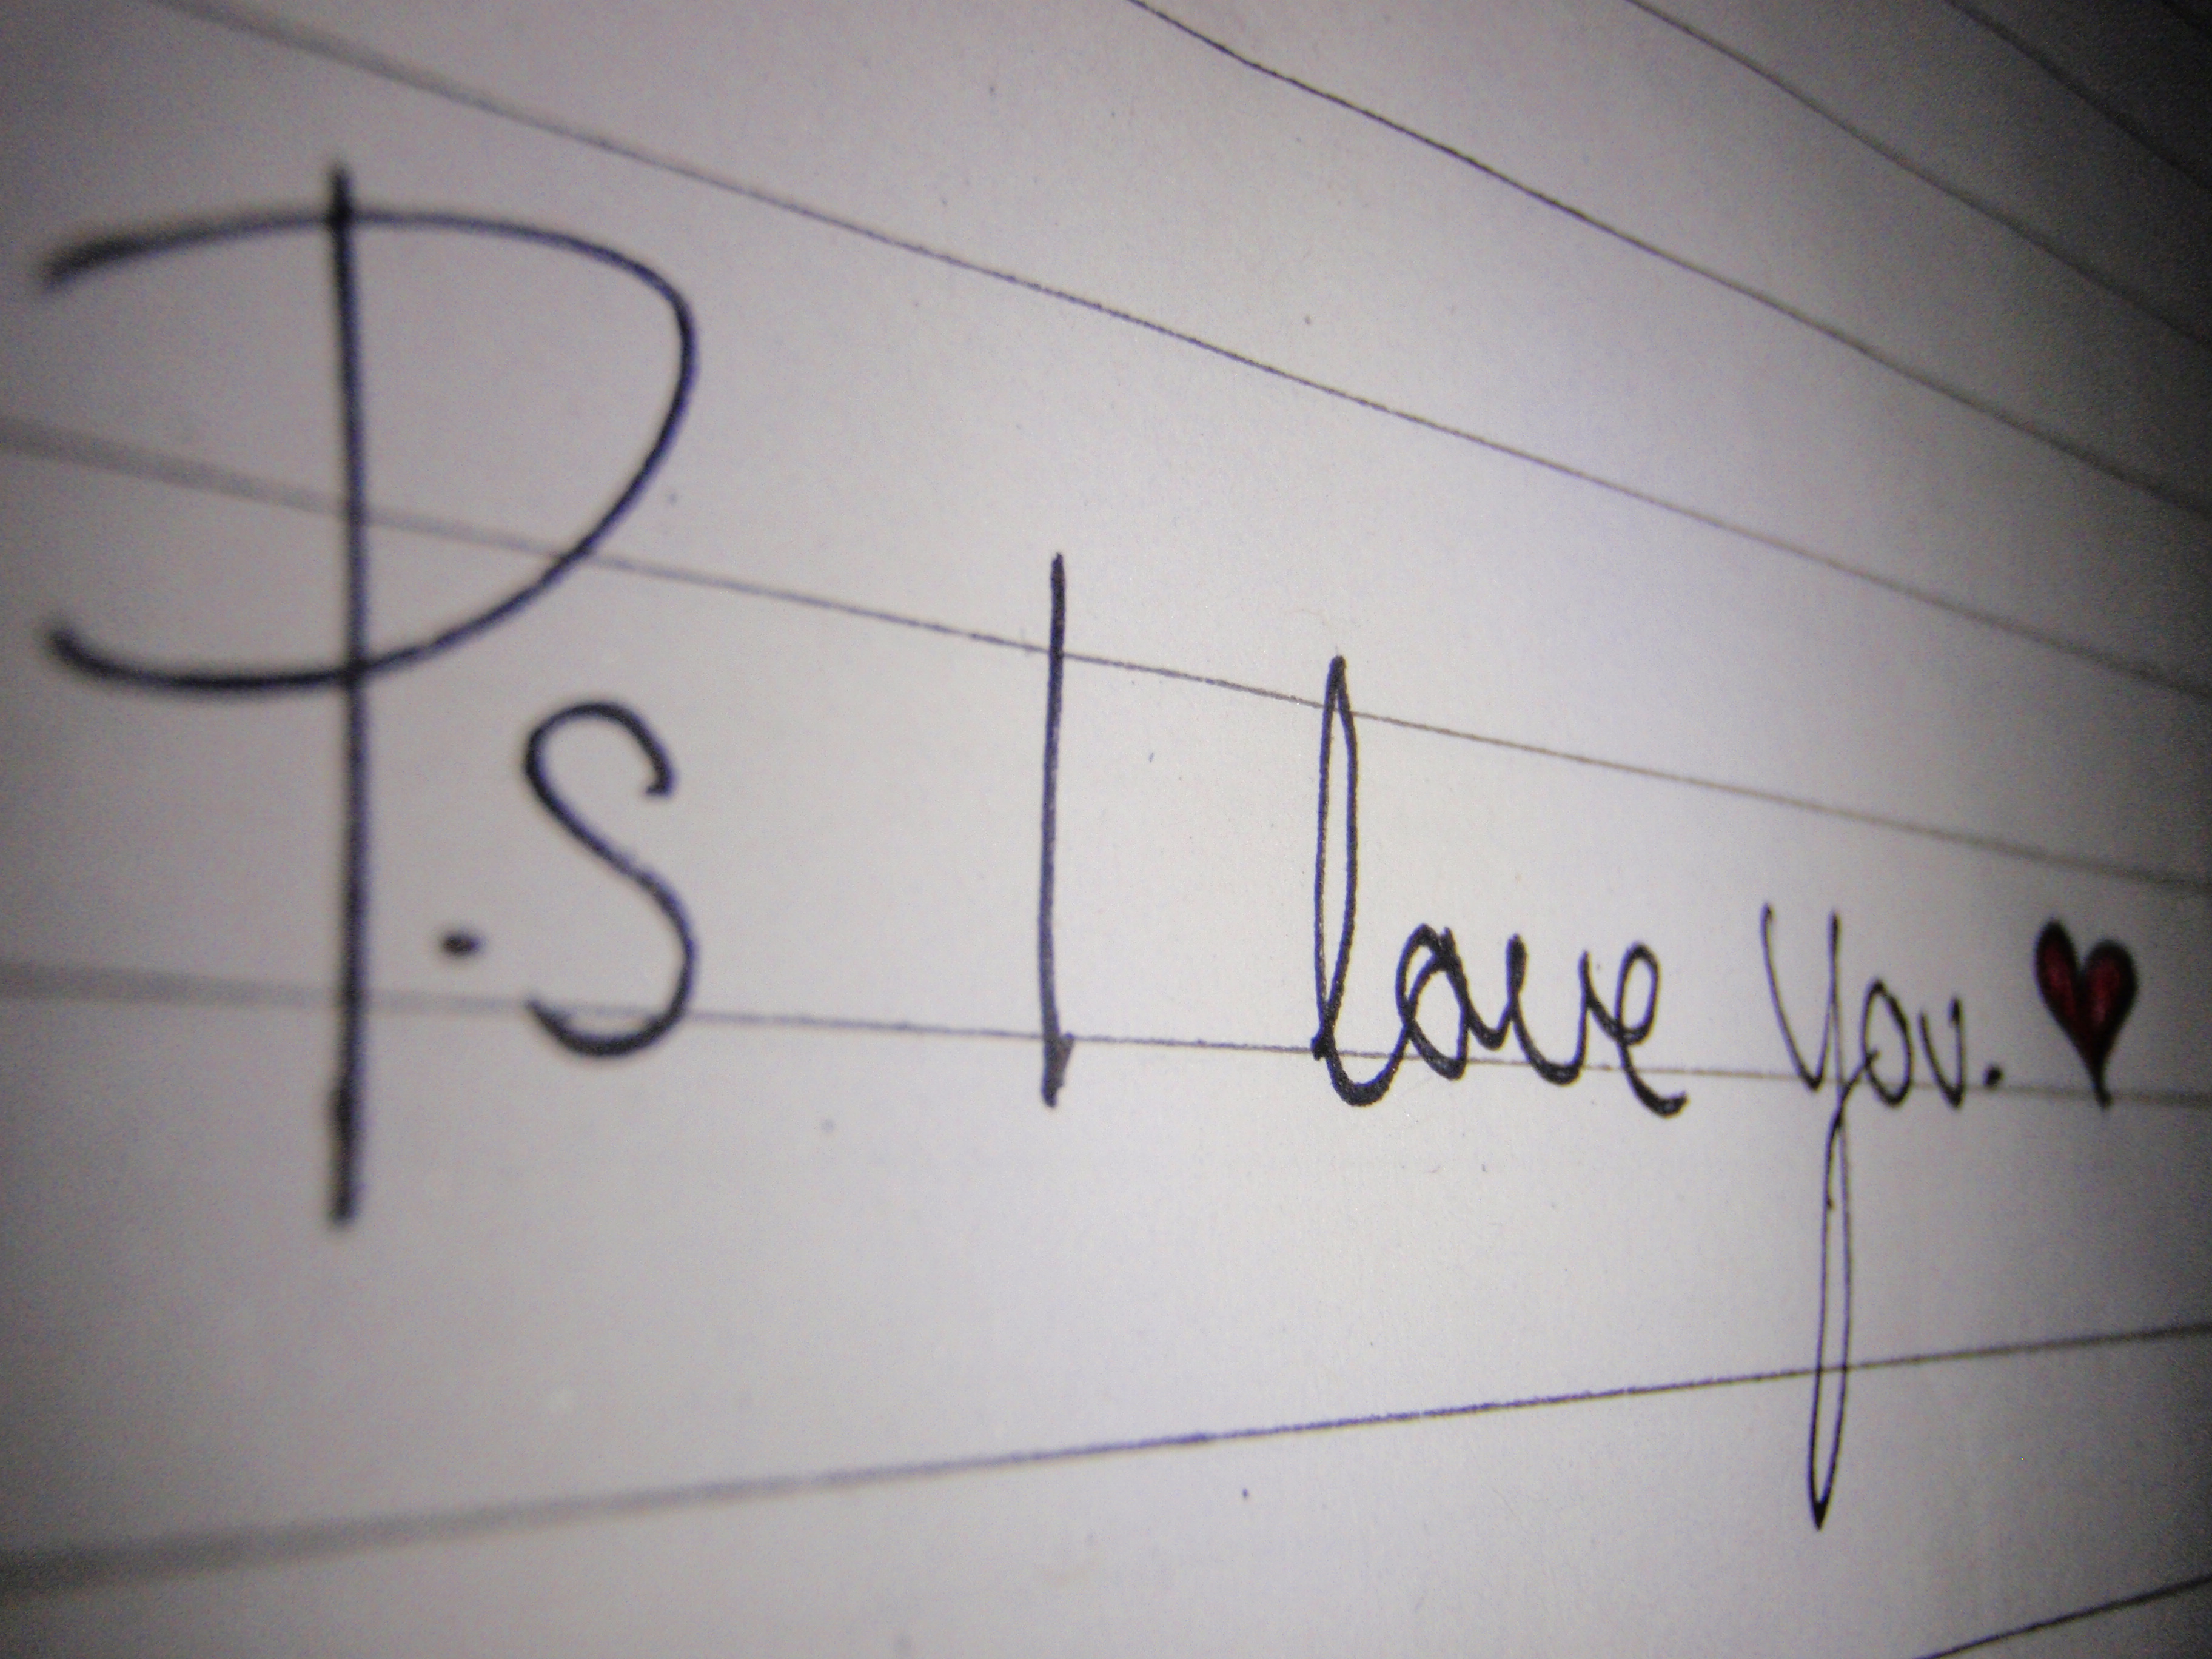 P.s I love you. ♥